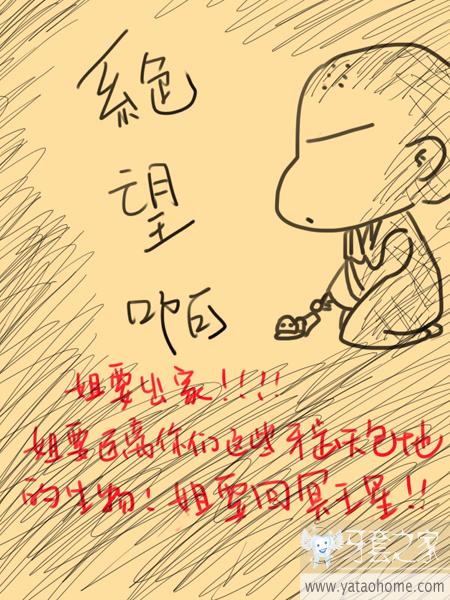 絶
望
啊
姐要出家!!!!
姐要远离你们这些牙齿天包地
的生物!姐要回冥王星!!
牙套之家
www.yataohome.com